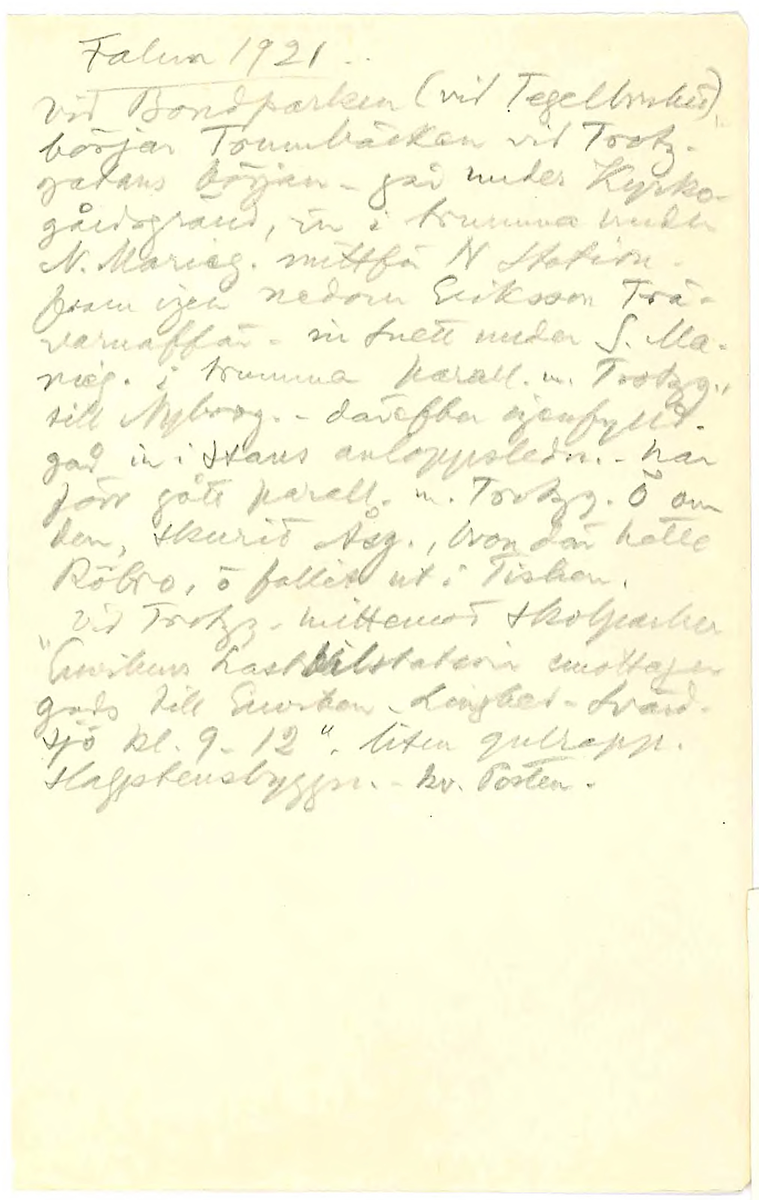 Falun 1921.
vid Bondparken (vid Tegelbruket)
börjar Trumbäcken vid Trotz-
gatans början - går under Kyrko-
gårdsgränd, in i trumma under
N. Marieg. mittför N Station -
fram igen nedom Eriksson Trä-
varuaffär - in snett under S. Ma-
rieg. i trumma parall. m. Trotzg.,
till Nybrog. - därefter igenfylld.
går in i stans avloppsledn. - har
förr gått parall. m. Trotzg. Ö om
den, skurit Åsg., bron där hette
Röbro, o fallit ut i Tisken.
Vid Trotzg. mittemot Skolparken
"Envikens Lastbilstation emottager
gods till Enviken - Linghed - Svärd-
sjö kl. 9 - 12". liten gulrapp.
slaggstensbyggn. - kv. Posten.